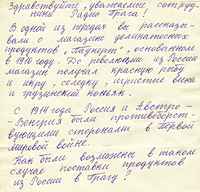 Здравствуйте, уважаемые сотруд-
ники Радио Прага!
В одной из передач вы рассказы-
вали о магазине деликатесных
продуктов "Паукерт", основанном
в 1916 году. До революции из России
магазин получал красную рыбу
и икру, селёдку, игристые вина
и грузинский коньяк.
С 1914 года Россия и Австро-
Венгрия были противоборст-
вующими сторонами в Первой
мировой войне.
Как были возможны в таком
случае поставки продуктов
из России в Прагу?